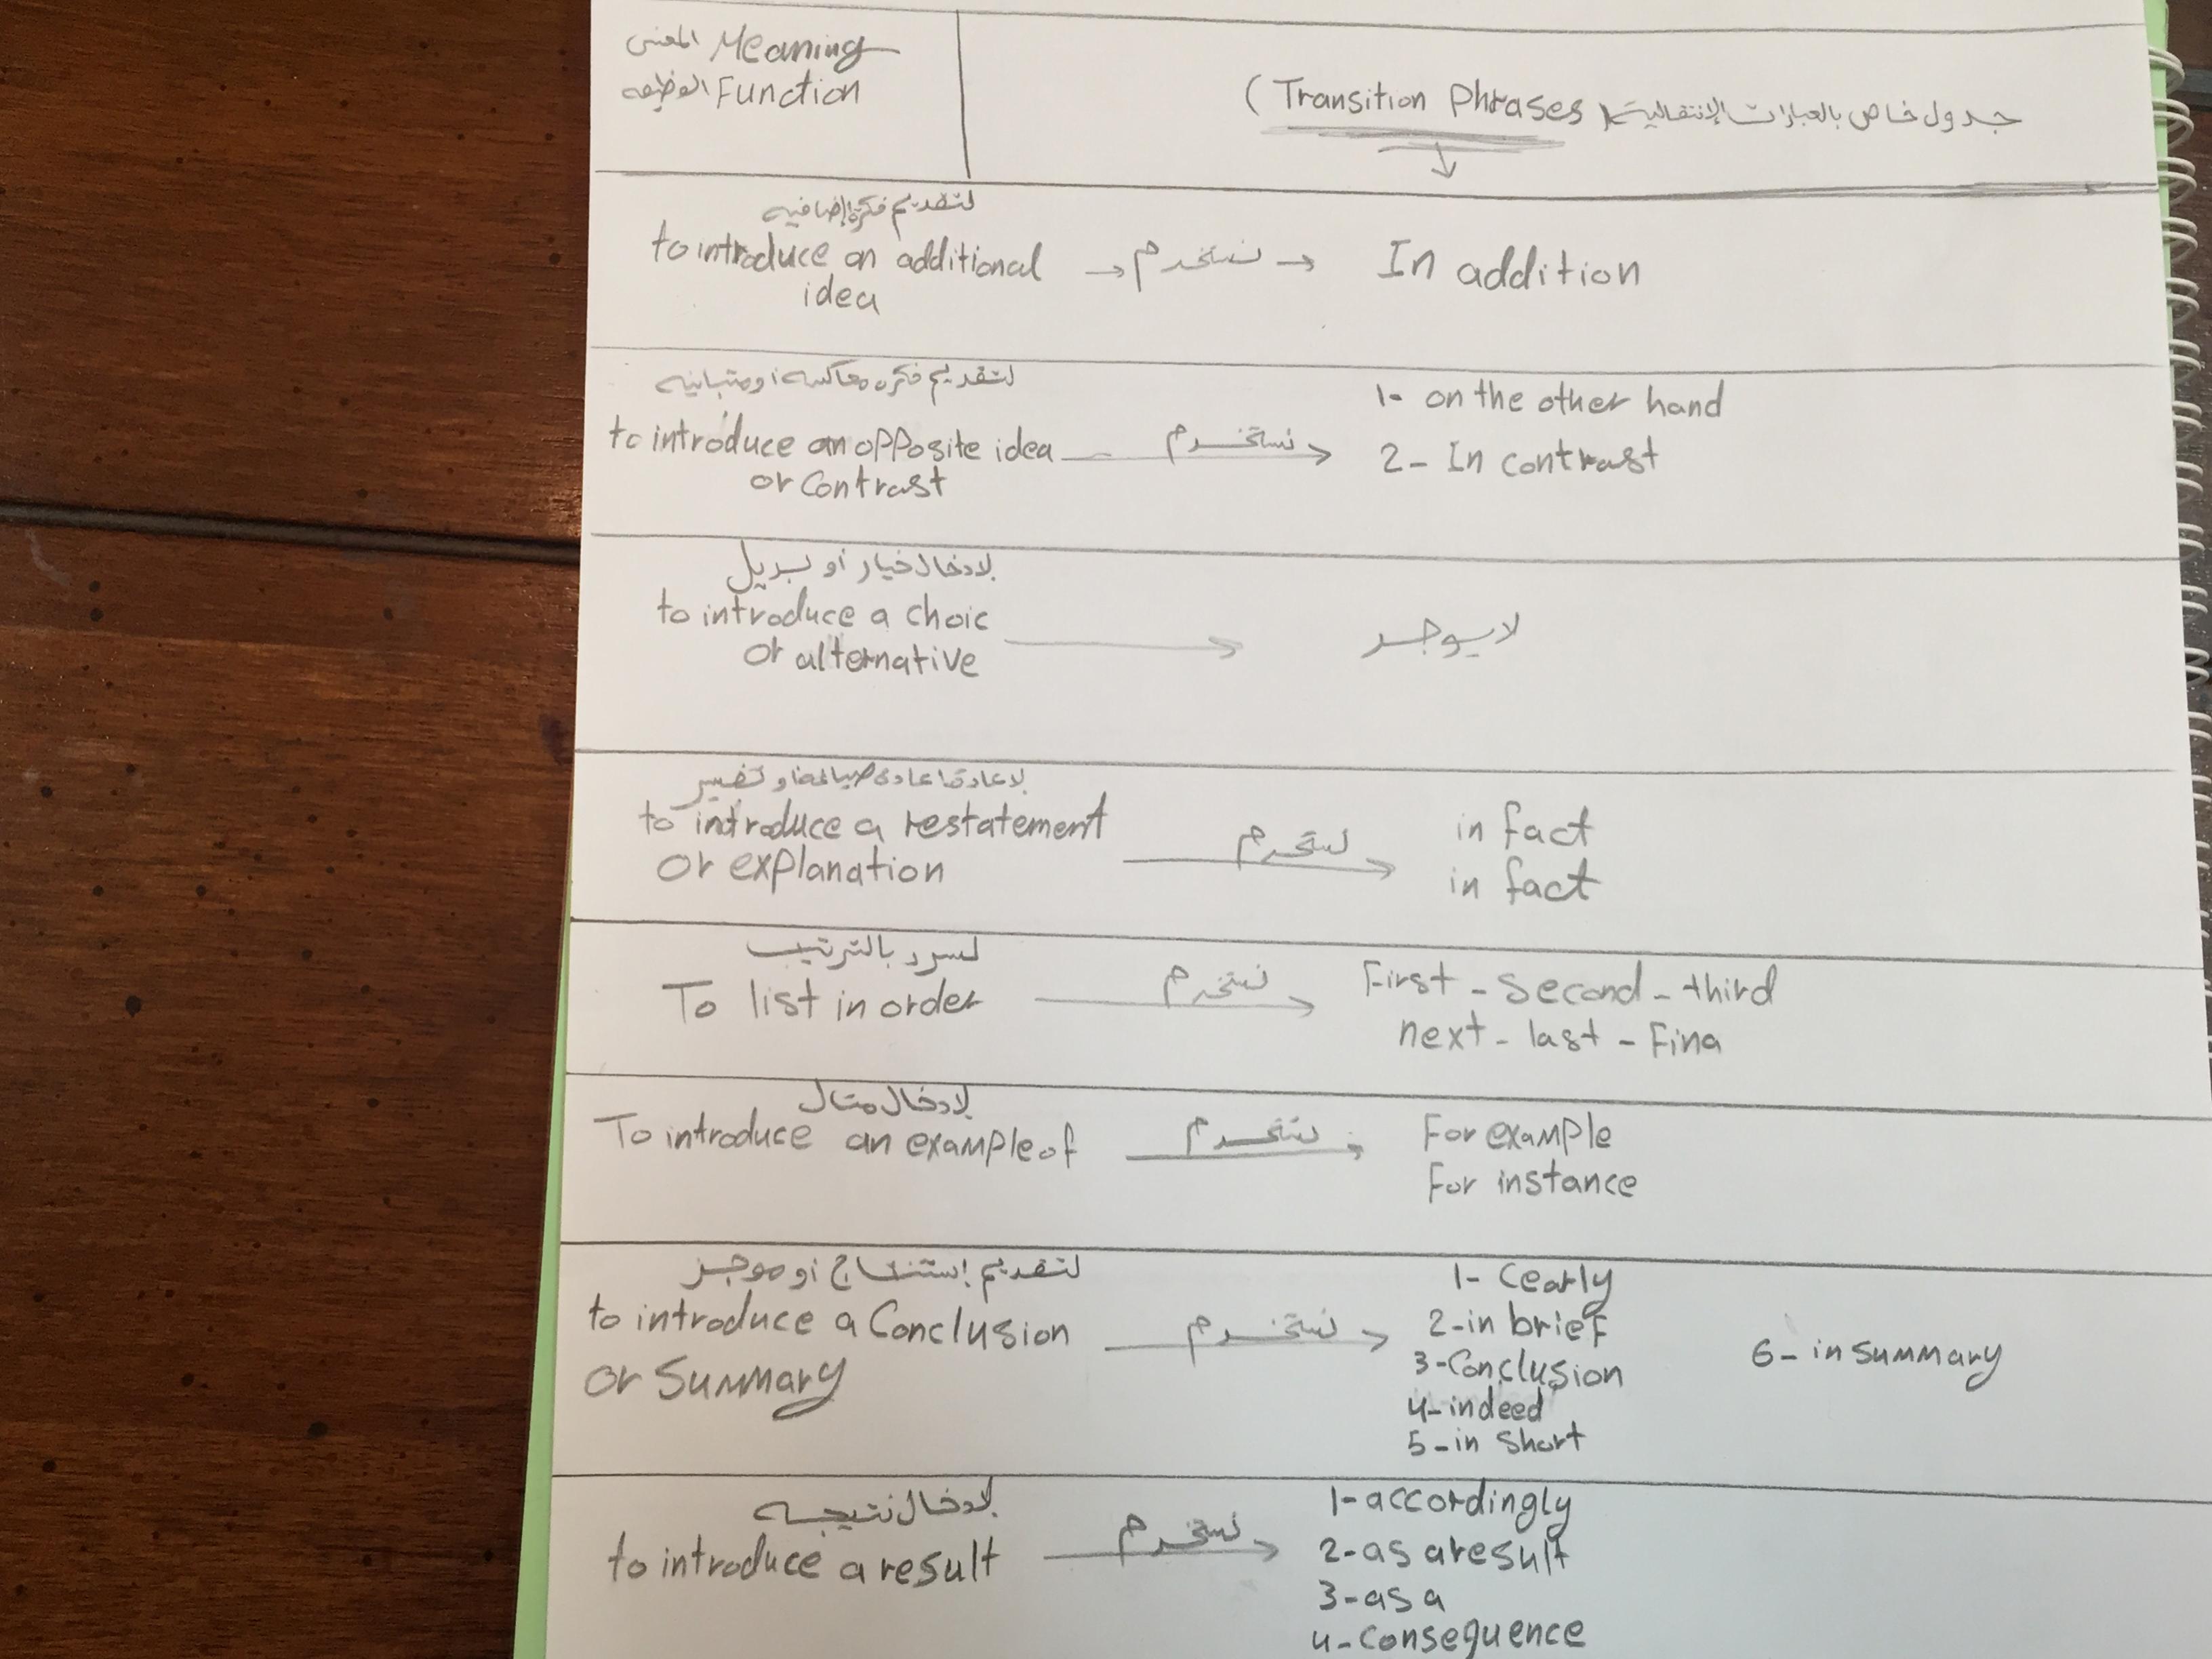 المعنى Meaning
الوظيفه Function
جدول خاص بالعبارات الإنتقالية (Transition Phrases)
لتقديم فكرة إضافيه
to introduce an additional
idea
نستخدم
In addition
لتقديم فكره معاكسه أو متباينه
to introduce an opposite idea
or contrast
نستخدم
1- on the other hand
2- In contrast
لادخال خيار أو بديل
to introduce a choic
or alternative
لايوجد
لاعادة اعادة صياغة او تفسير
to introduce a restatement
or explanation
نستخدم
in fact
in fact
لسرد بالترتيب
To list in order
نستخدم
First - second - third
next - last - Fina
لادخال مثال
To introduce an example of
نستخدم
For example
For instance
لتقديم إستنتاج أو موجز
to introduce a Conclusion
or Summary
نستخدم
1- Cearly
2- in brief
3- Conclusion
4- indeed
5- in short
6- in summary
لادخال نتيجه
to introduce a result
نستخدم
1- accordingly
2- as a result
3- as a
4- Consequence